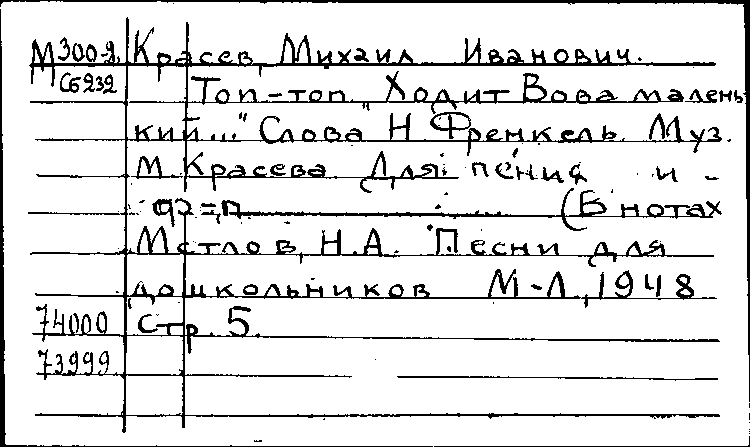 М300-2 Красев, Михаил Иванович.
Сб232 Топ-топ „Ходит Вова малень-
кий..." Слова Н. Френкель. Муз.
М. Красева. Для пения и
(В нотах
Метлов, Н.А. Песни для
дошкольников М-Л, 1948
74000 Стр. 5.
73999